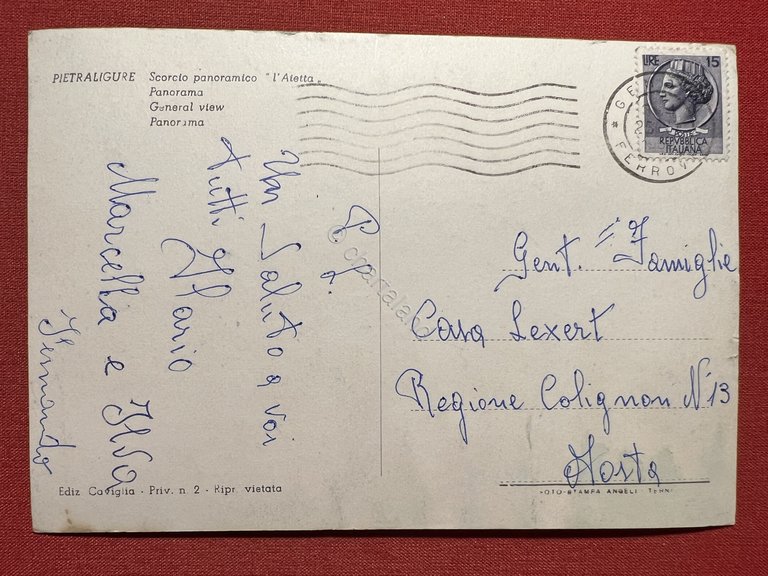 PIETRALIGURE Scorcio panoramico "l'Aietta"
Panorama
General view
Panorama
LIRE 15
POSTE
REPVBBLICA
ITALIANA
GE
FERROV
P. L.
Un Saluto a voi
tutti Ilario
Marcella e Ilva
Fernando
Gent. Famiglie
Casa Lexert
Regione Colignon N°13
Aosta
Ediz Caviglia - Priv. n. 2 - Ripr. vietata
FOTO-STAMPA ANGELI - TERNI